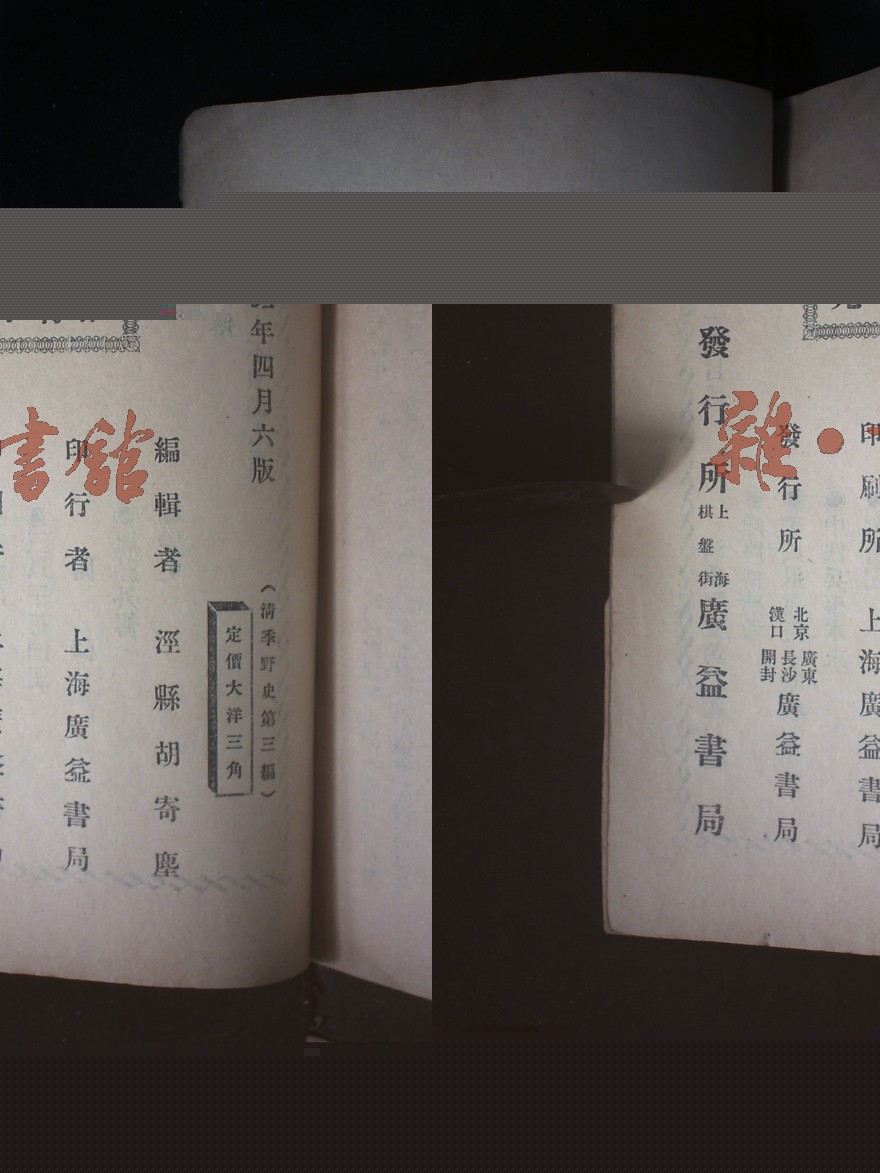 年四月六版
(清季野史第三編)
定價大洋三角
編輯者 涇縣胡寄塵
印行者 上海廣益書局
印刷所 上海廣益書局
發行所 北京 漢口 廣東 長沙 開封 廣益書局
發行所 上海棋盤街 廣益書局
書館
雜